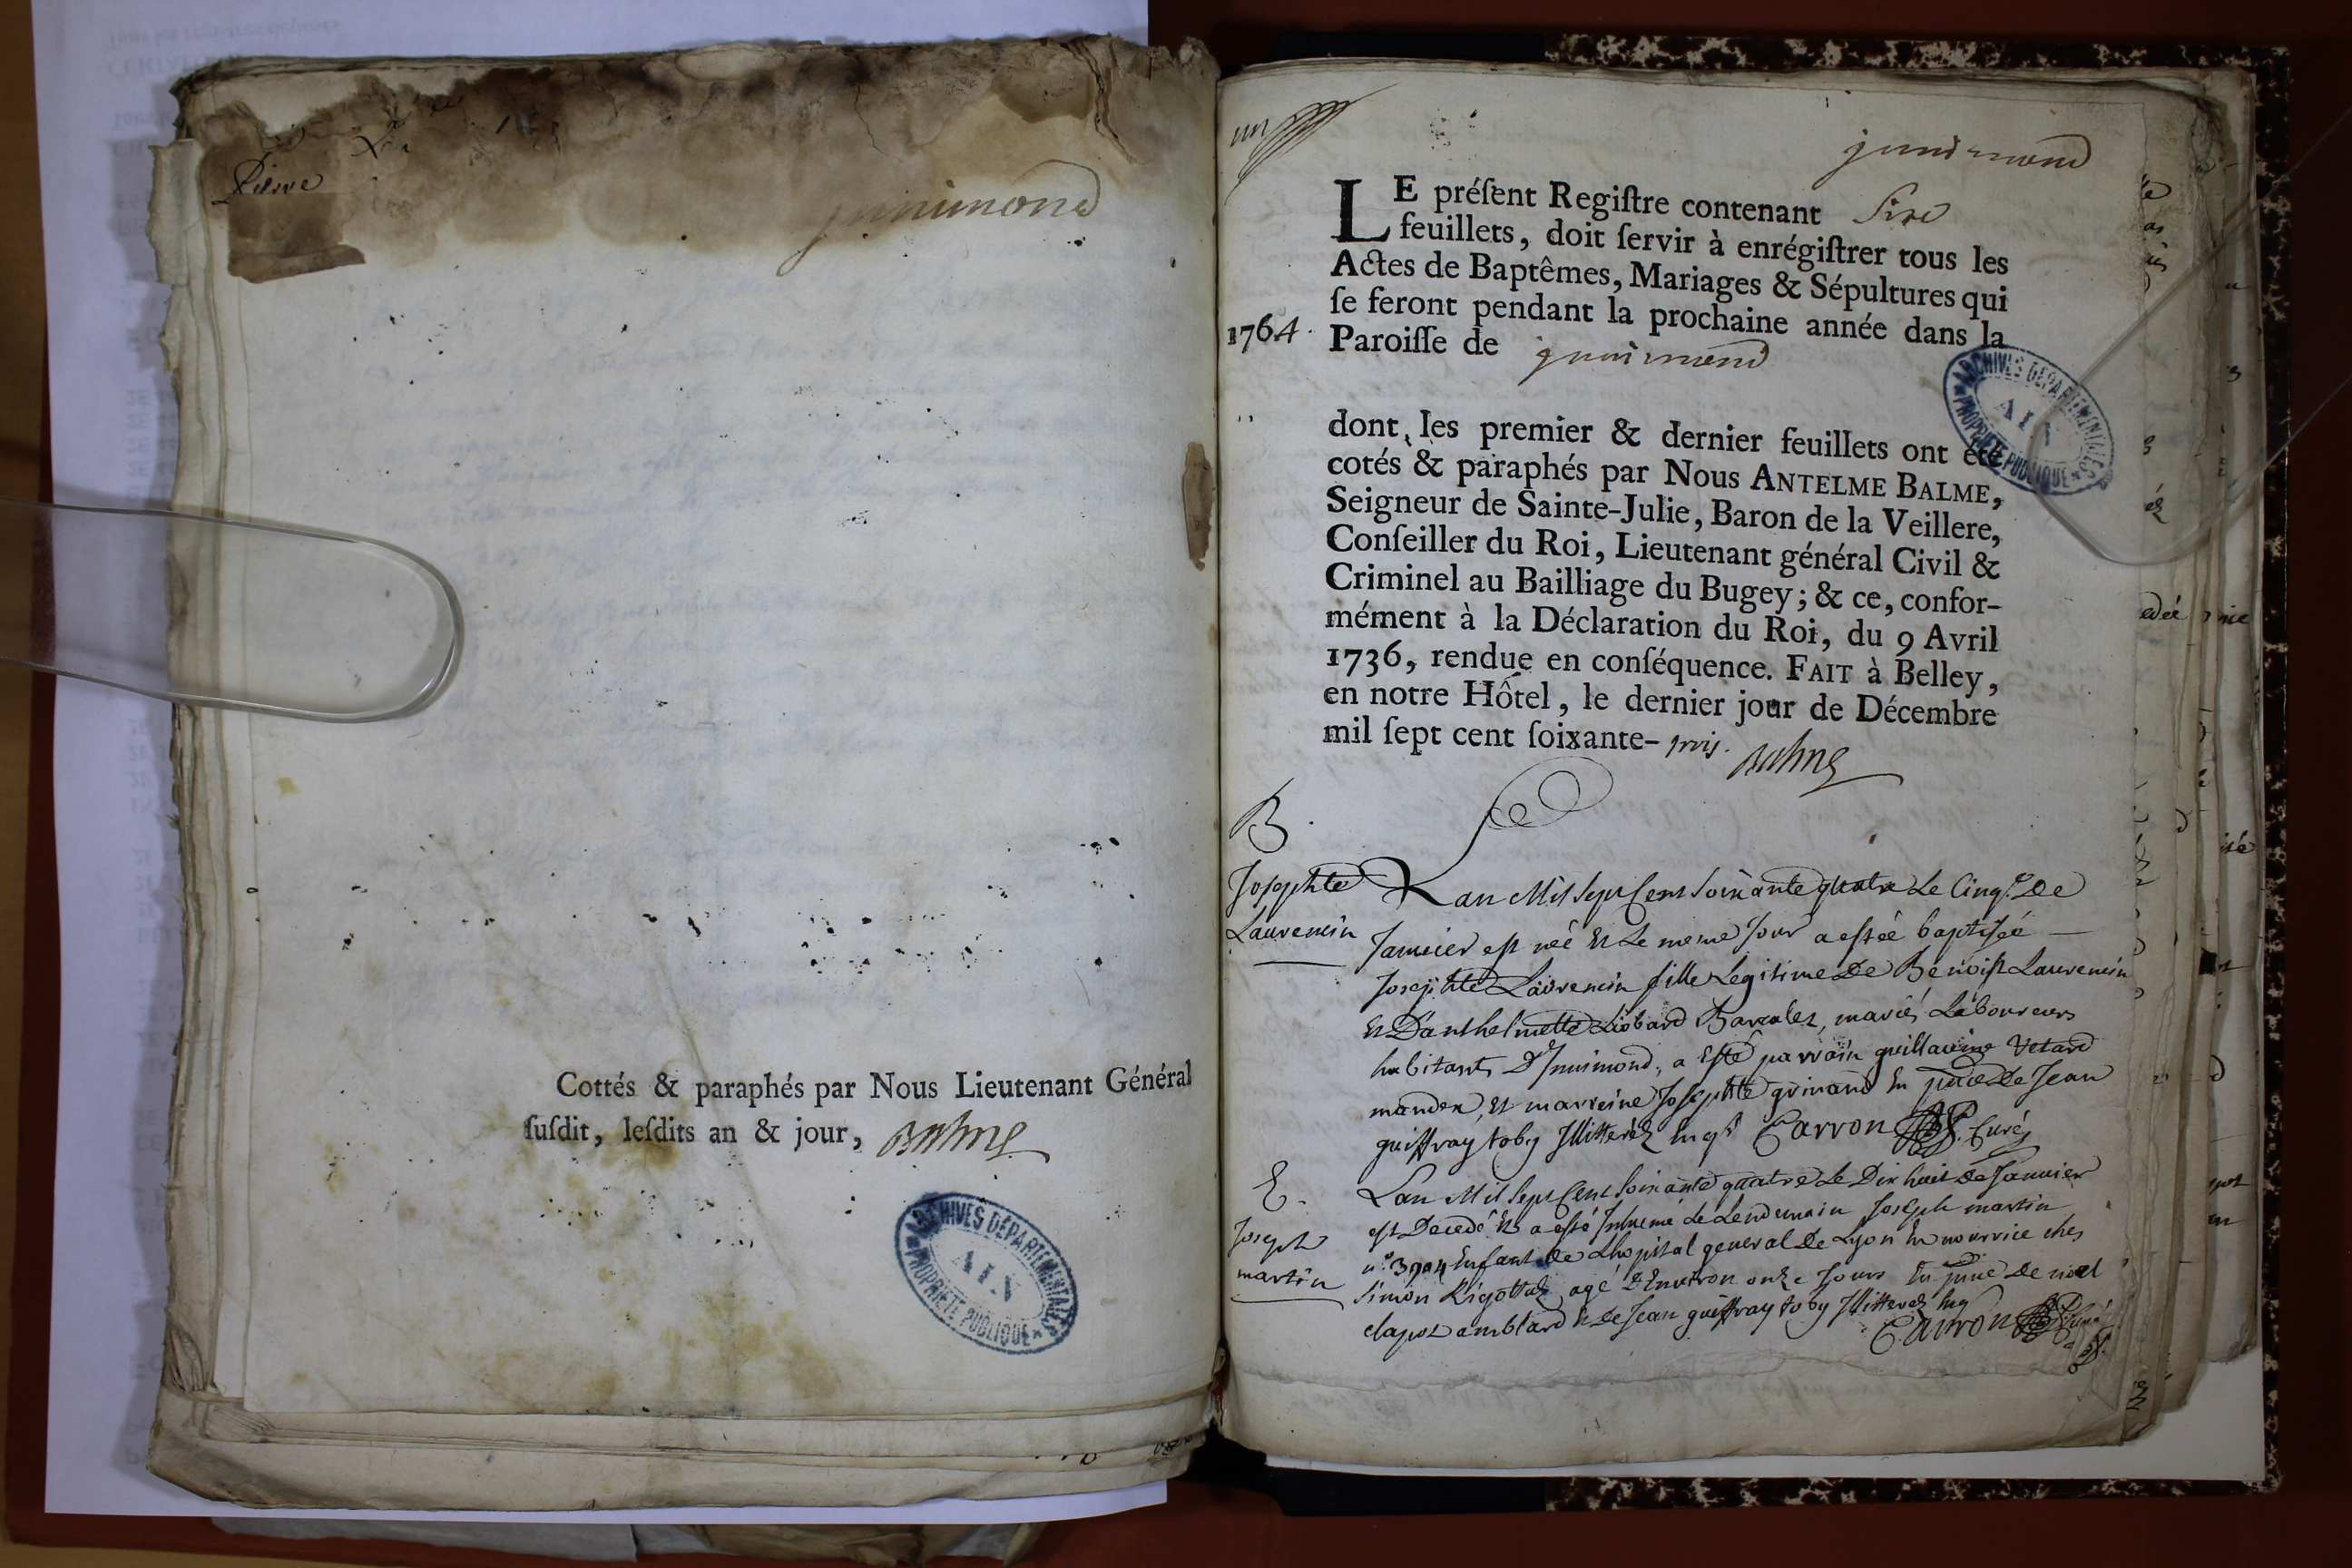 junimond
Cottés & paraphés par Nous Lieutenant Général
ſuſdit, leſdits an & jour, Balme
ARCHIVES DÉPARTEMENTALES
AIN
PROPRIÉTÉ PUBLIQUE
un
jnnimond
LE préſent Regiſtre contenant Sixe
feuillets, doit ſervir à enrégiſtrer tous les
Actes de Baptêmes, Mariages & Sépultures qui
ſe feront pendant la prochaine année dans la
1764. Paroiſſe de jnnimond
ARCHIVES DÉPARTEMENTALES
AIN
PROPRIÉTÉ PUBLIQUE
dont les premier & dernier feuillets ont été
cotés & paraphés par Nous ANTELME BALME,
Seigneur de Sainte-Julie, Baron de la Veillere,
Conſeiller du Roi, Lieutenant général Civil &
Criminel au Bailliage du Bugey; & ce, confor-
mément à la Déclaration du Roi, du 9 Avril
1736, rendue en conſéquence. FAIT à Belley,
en notre Hôtel, le dernier jour de Décembre
mil ſept cent ſoixante-trois. Balme
B.
Josephte
Laurencin
Lan Mil Sept Cent Soixante quatre Le Cinqe De
Januier est néé Et Le meme Jour a estéé baptiséé
Josephte Laurencin fille Legitime De Benoist Laurencin
Et D'anthelmette Liobard Barcalet, mariés Laboureurs
habitants D'Innimond, a Esté parrain guillaume Vetard
mander, Et marreine Josephte grinand En pnce De Jean
guiffray toby Illitteréz Enqs Carron Curé
E.
Joseph
martin
Lan Mil Sept Cent Soixante quatre Le Dix huit De Januier
est Decedé Et a esté Inhumé le Lendemain Joseph martin
n° 3904 Enfant De Lhopital general De Lyon En nourrice ches
Simon Rigottaz, agé D'Environ onze Jours En pnce De noel
clapot amblard Et De Jean guiffray toby Illitteréz Enq
Carron Curé